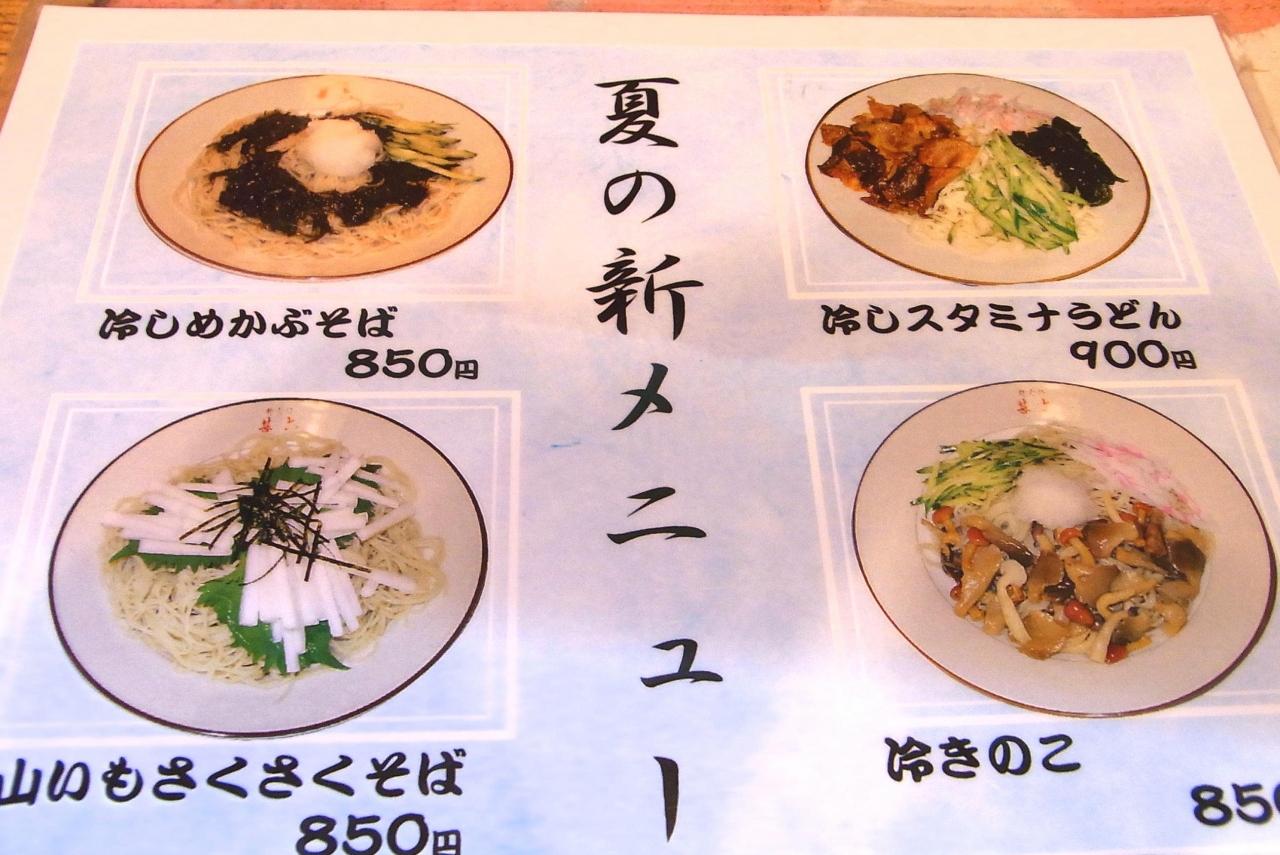 夏の新メニュー
冷しめかぶそば
850円
冷しスタミナうどん
900円
山いもさくさくそば
850円
冷きのこ
850